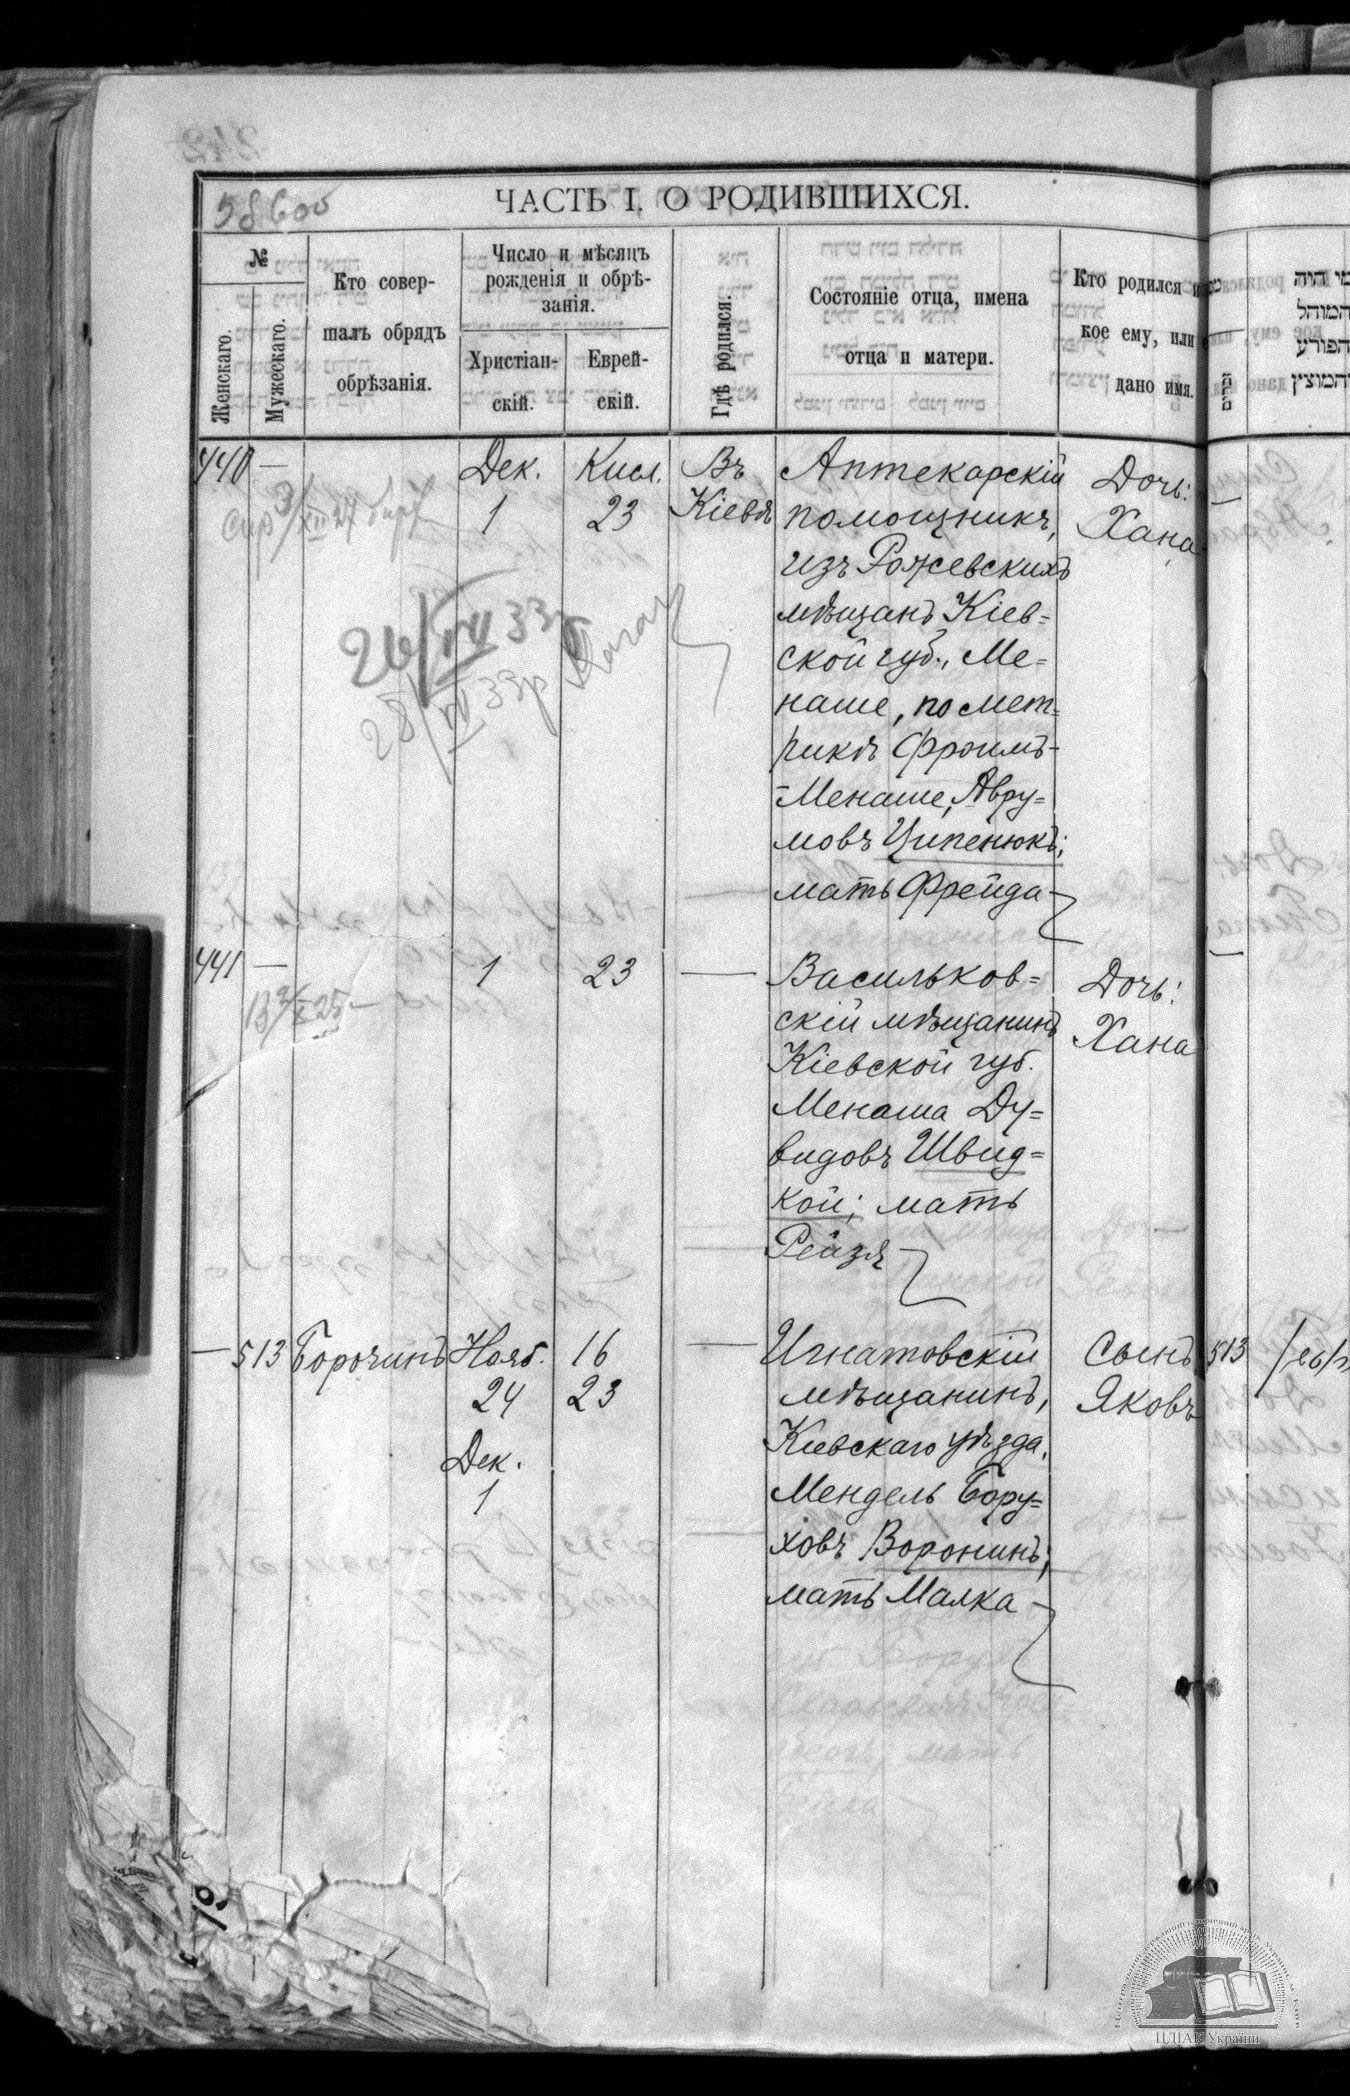 58600
ЧАСТЬ I. О РОДИВШИХСЯ.
№
Женскаго.
Мужескаго.
Кто совер-
шалъ обрядъ
обрѣзанія.
Число и мѣсяцъ
рожденія и обрѣ-
занія.
Христіан-
скій.
Еврей-
скій.
Гдѣ родился.
Состояніе отца, имена
отца и матери.
Кто родился и
кое ему, или
дано имя.
מי היה
המוהל
הפורע
והמוצץ
440 —
Дек.
1
Кисл.
23
Въ
Кіевѣ
Аптекарскій
помощникъ,
изъ Рожевскихъ
мѣщанъ Кіев=
ской губ., Ме=
наше, по мет=
рикѣ Фроимъ-
-Менаше, Авру=
мовъ Ципенюкъ;
мать Фрейда
Дочь:
Хана
26/VII 33
28/VII 33р
441 —
1
23
—
Васильков=
скій мѣщанинъ
Кіевской губ.
Менаша Ду=
видовъ Швид=
кой; мать
Рейзя
Дочь:
Хана
— 513
Борочинъ
Нояб.
24
Дек.
1
16
23
—
Игнатовскій
мѣщанинъ,
Кіевскаго уѣзда,
Мендель Бору=
ховъ Воронинъ;
мать Малка
Сынъ
Яковъ
513
ЦДІАК України